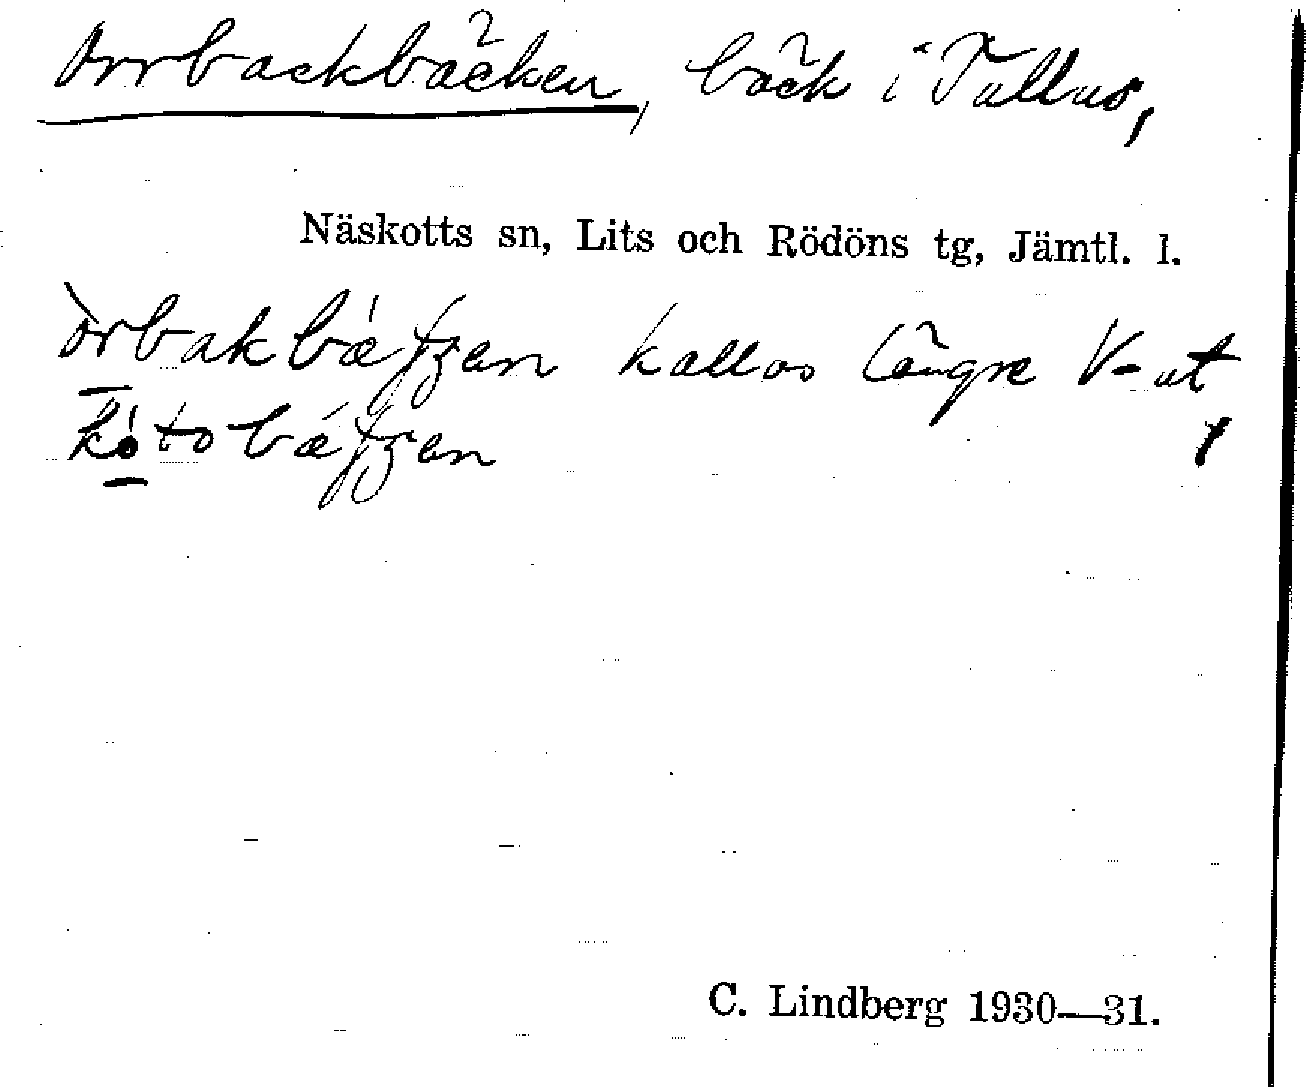 Orrbackbäcken, bäck i Tullus,
Näskotts sn, Lits och Rödöns tg, Jämtl. l.
kallas längre V-ut
C. Lindberg 1930—31.